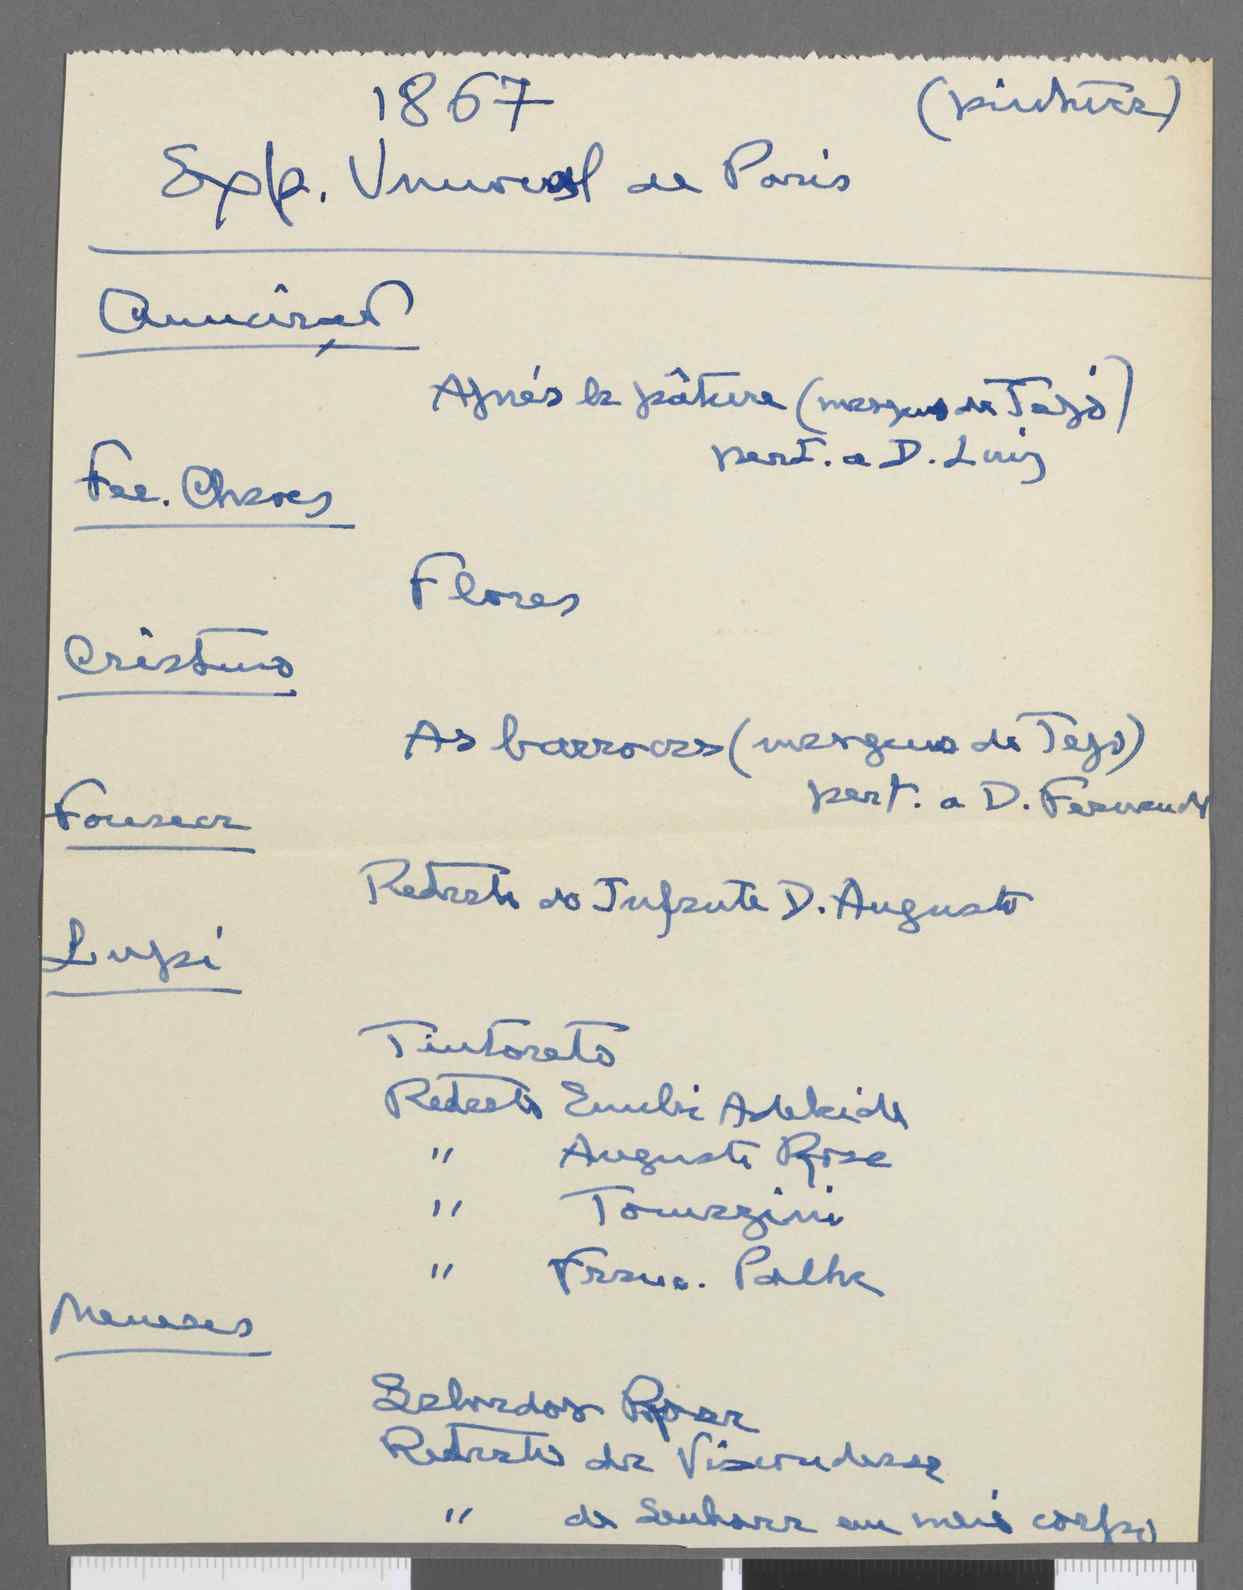 1867 (pintura)
Exp. Universal de Paris
Anunciação
Après la pâture (margens do Tejo)
pert. a D. Luiz
Fee. Chaves
Flores
Cristino
As barrocas (margens do Tejo)
pert. a D. Fernando
Fonseca
Retrato do Infante D. Augusto
Lupi
Tintoreto
Retrato Emilia Adelaide
" Augusto Rosa
" Tomazini
" Franc. Palha
Meneses
Salvador Rosa
Retrato da Viscondessa
" de Senhora em meio corpo